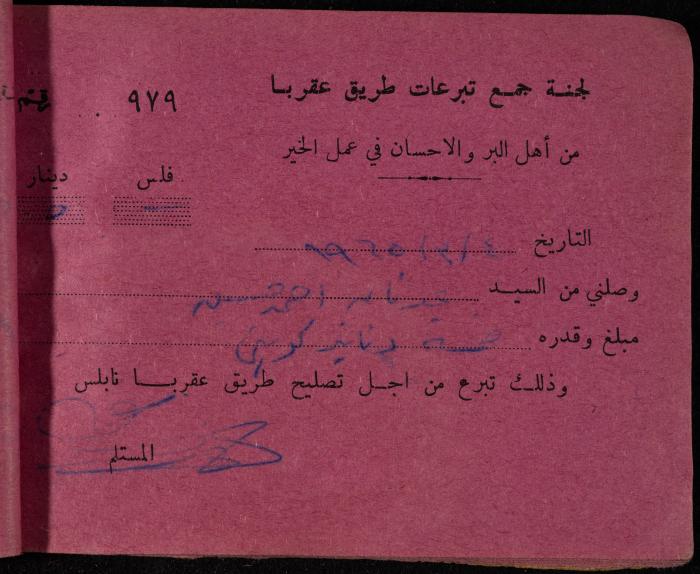 لجنة جمع تبرعات طريق عقربا
٩٧٩
من أهل البر والاحسان في عمل الخير
فلس دينار
التاريخ
وصلني من السيد عدنان احمد
مبلغ وقدره خمسة دنانير كويتي
وذلك تبرع من اجل تصليح طريق عقربا نابلس
المستلم